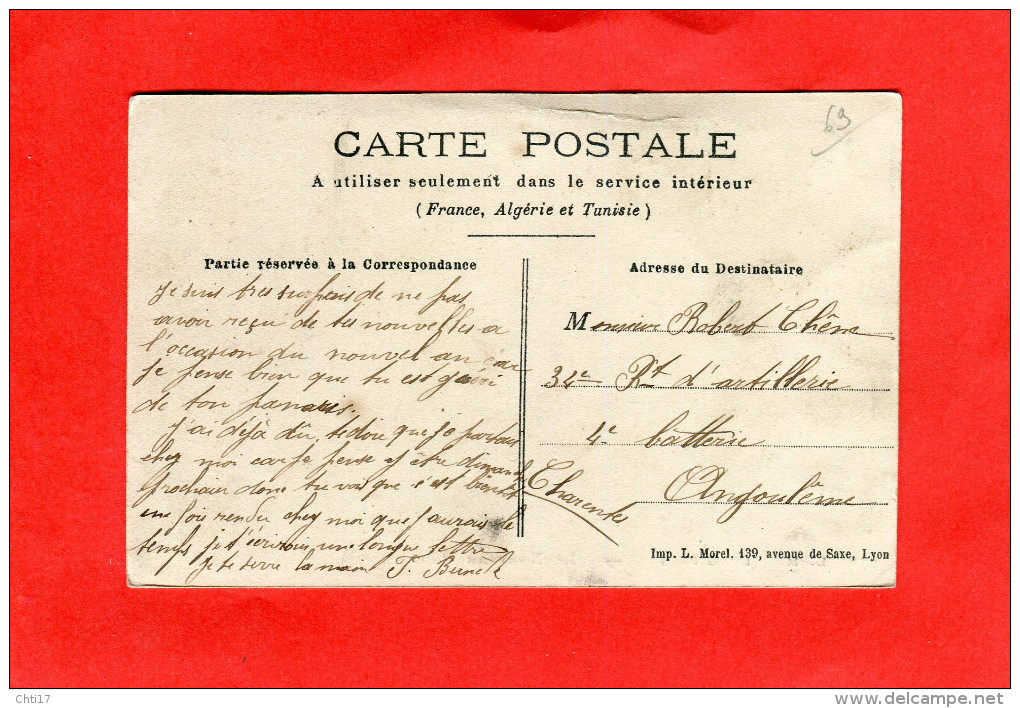 69
CARTE POSTALE
A utiliser seulement dans le service intérieur
(France, Algérie et Tunisie)
Partie réservée à la Correspondance
Je suis tres surpris de ne pas
avoir reçu de tes nouvelles a
l'occasion du nouvel an car
je pense bien que tu est guéri
de ton panaris.
J'ai déjà dû te dire que je partais
chez moi car je pense y être dimanche
prochain donc tu vois que c'est bientôt
une fois rendu chez moi que j'aurais le
temps je t'écrirais une longue lettre
Je te serre la main J.
Adresse du Destinataire
Monsieur Robert Chêne
34e Rt d'artillerie
4e batterie
Angoulême
Charentes
Imp. L. Morel. 139, avenue de Saxe, Lyon
Chti17
www.delcampe.net